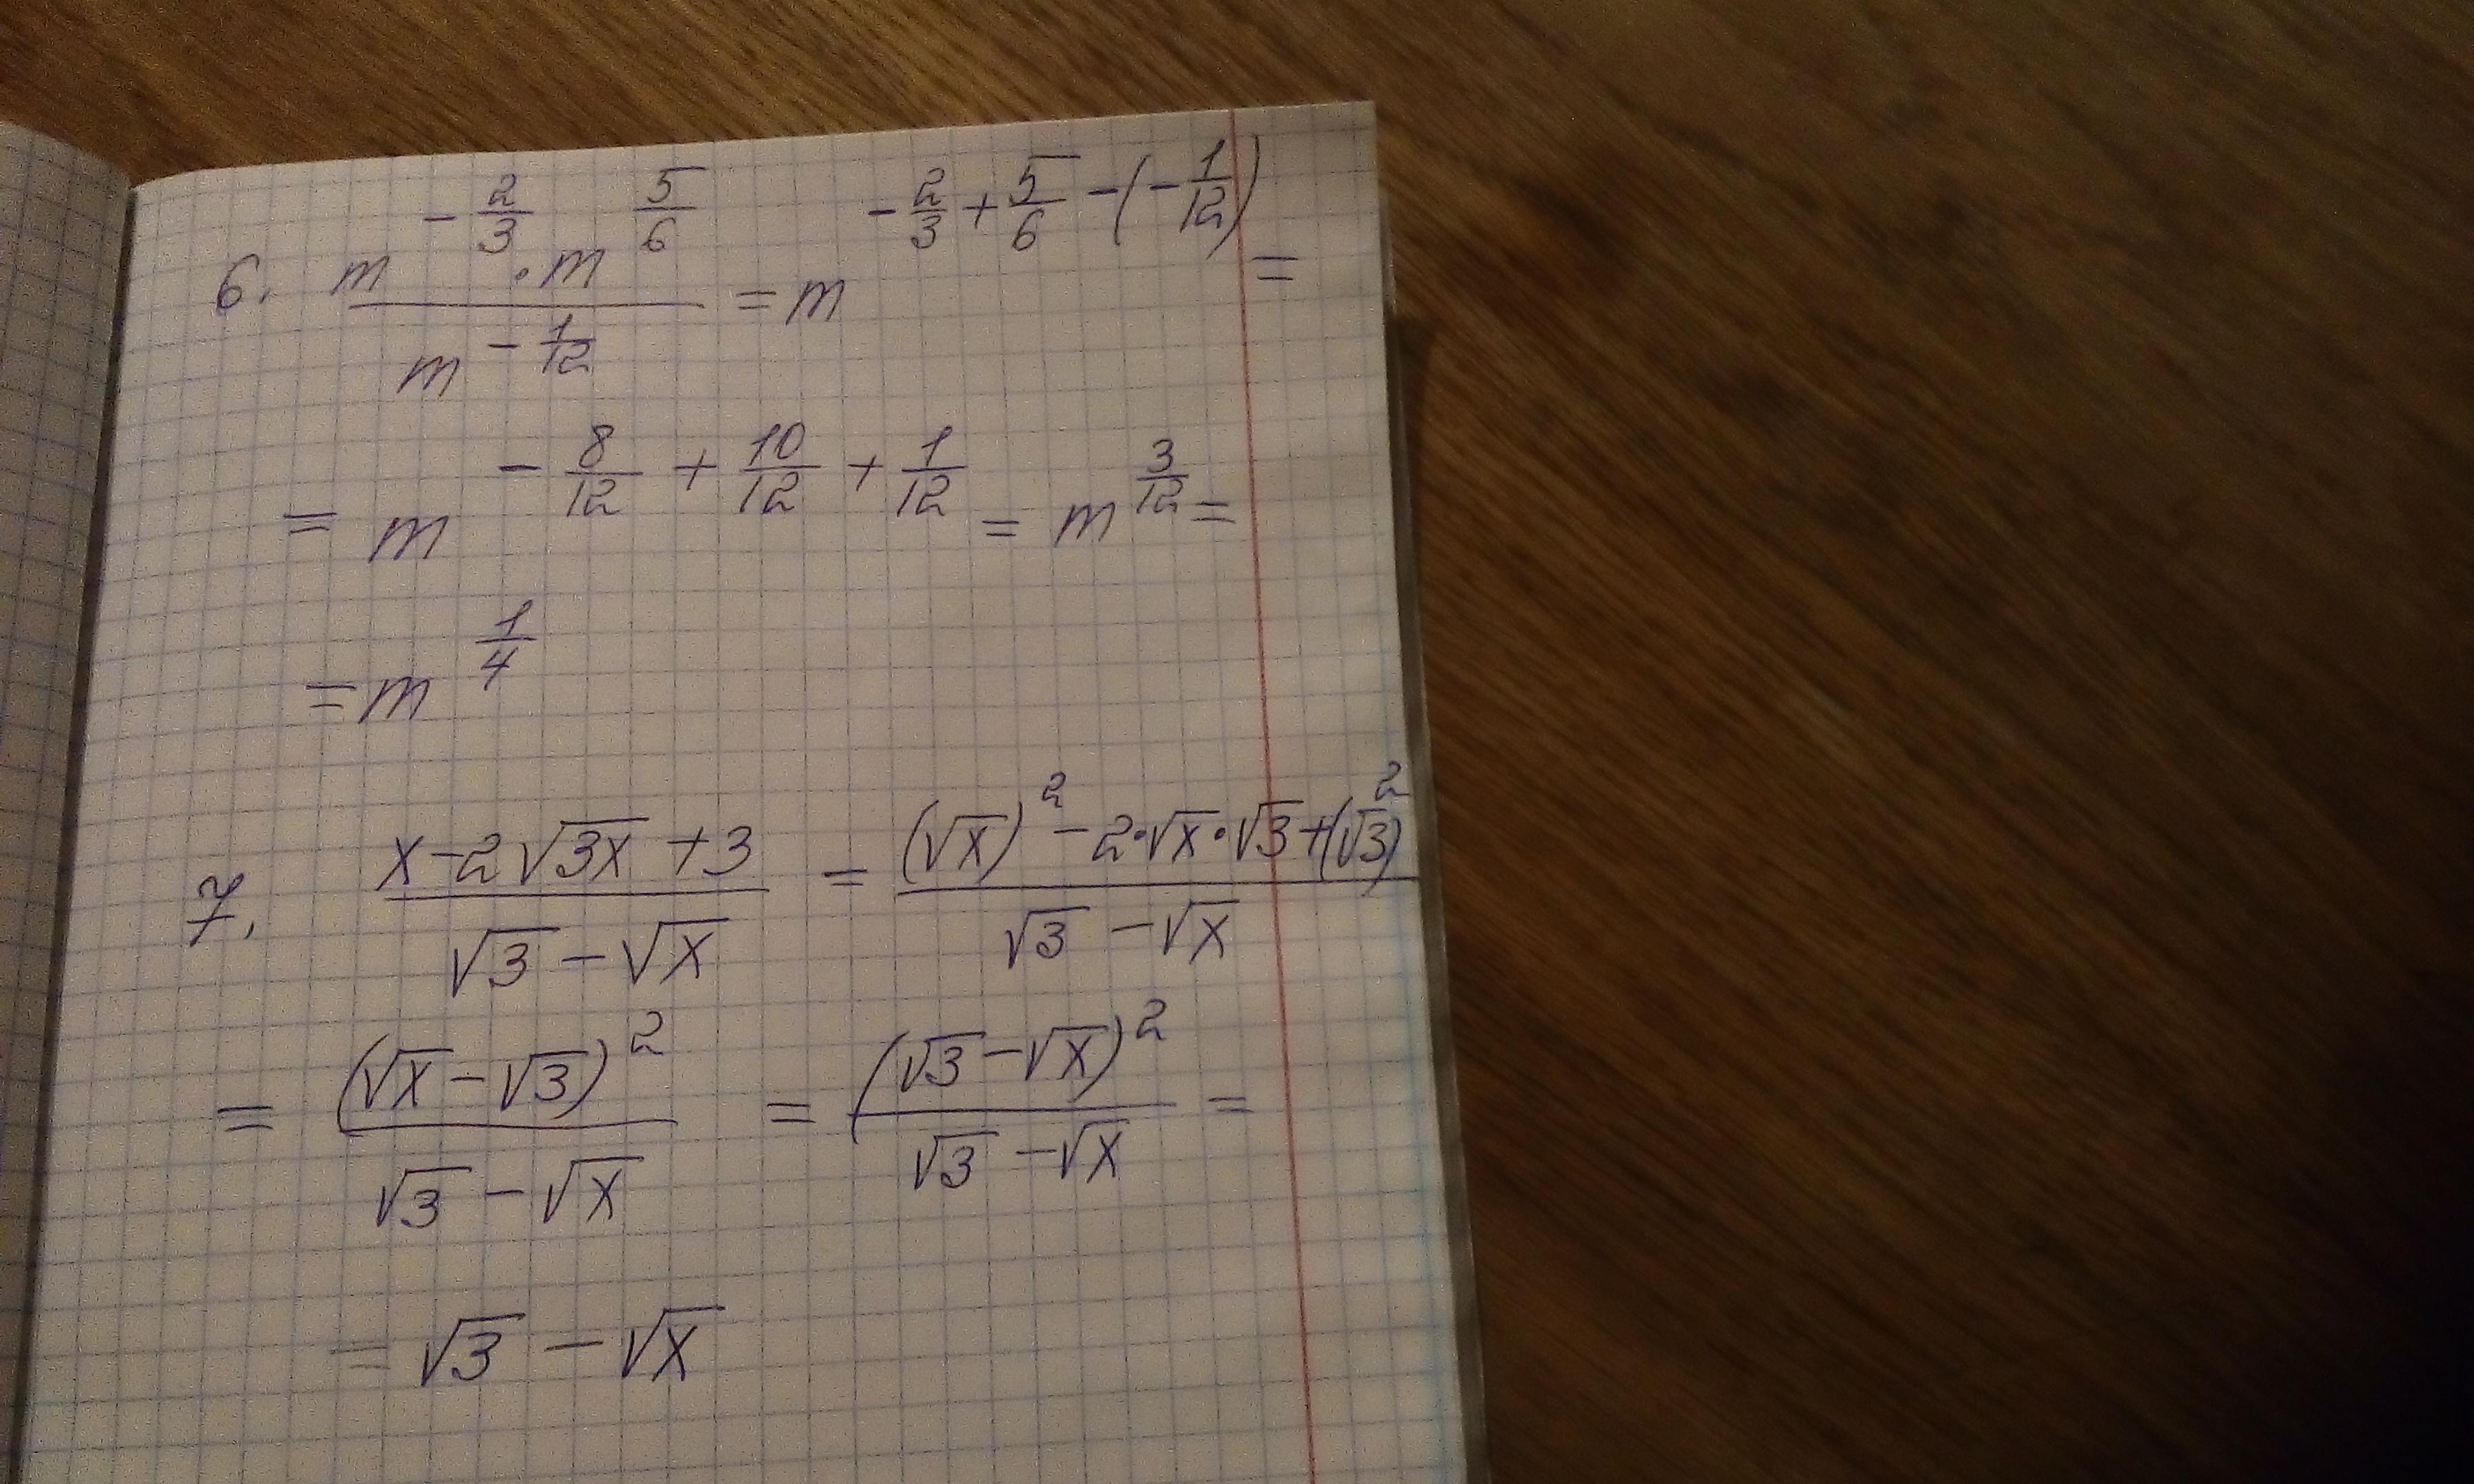 6. m^{-2/3} · m^{5/6} / m^{-1/12} = m^{-2/3 + 5/6 - (-1/12)} =
= m^{-8/12 + 10/12 + 1/12} = m^{3/12} =
= m^{1/4}
7. (x - 2√(3x) + 3) / (√3 - √x) = ((√x)^2 - 2·√x·√3 + (√3)^2) / (√3 - √x)
= (√x - √3)^2 / (√3 - √x) = (√3 - √x)^2 / (√3 - √x) =
= √3 - √x